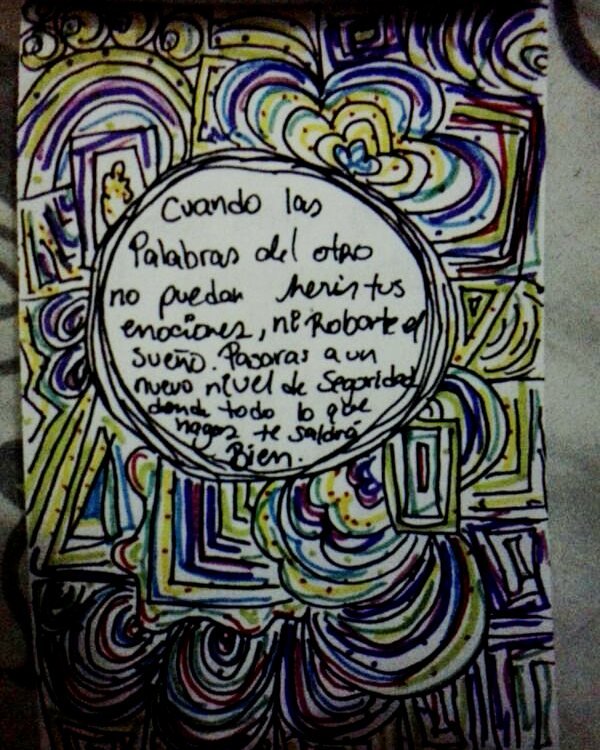 Cuando las
Palabras del otro
no puedan herir tus
emociones, ni Robarte el
sueño. Pasaras a un
nuevo nivel de Seguridad
donde todo lo que
hagas te saldrá
Bien.